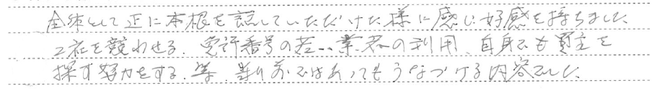 全体として正に本根を話していただけた様に感じ好感を持ちました
2社を競わせる、受許番号の若い業者の利用、自身でも買主を
探す努力をする、等、当り前ではあってもうなづける内容でした